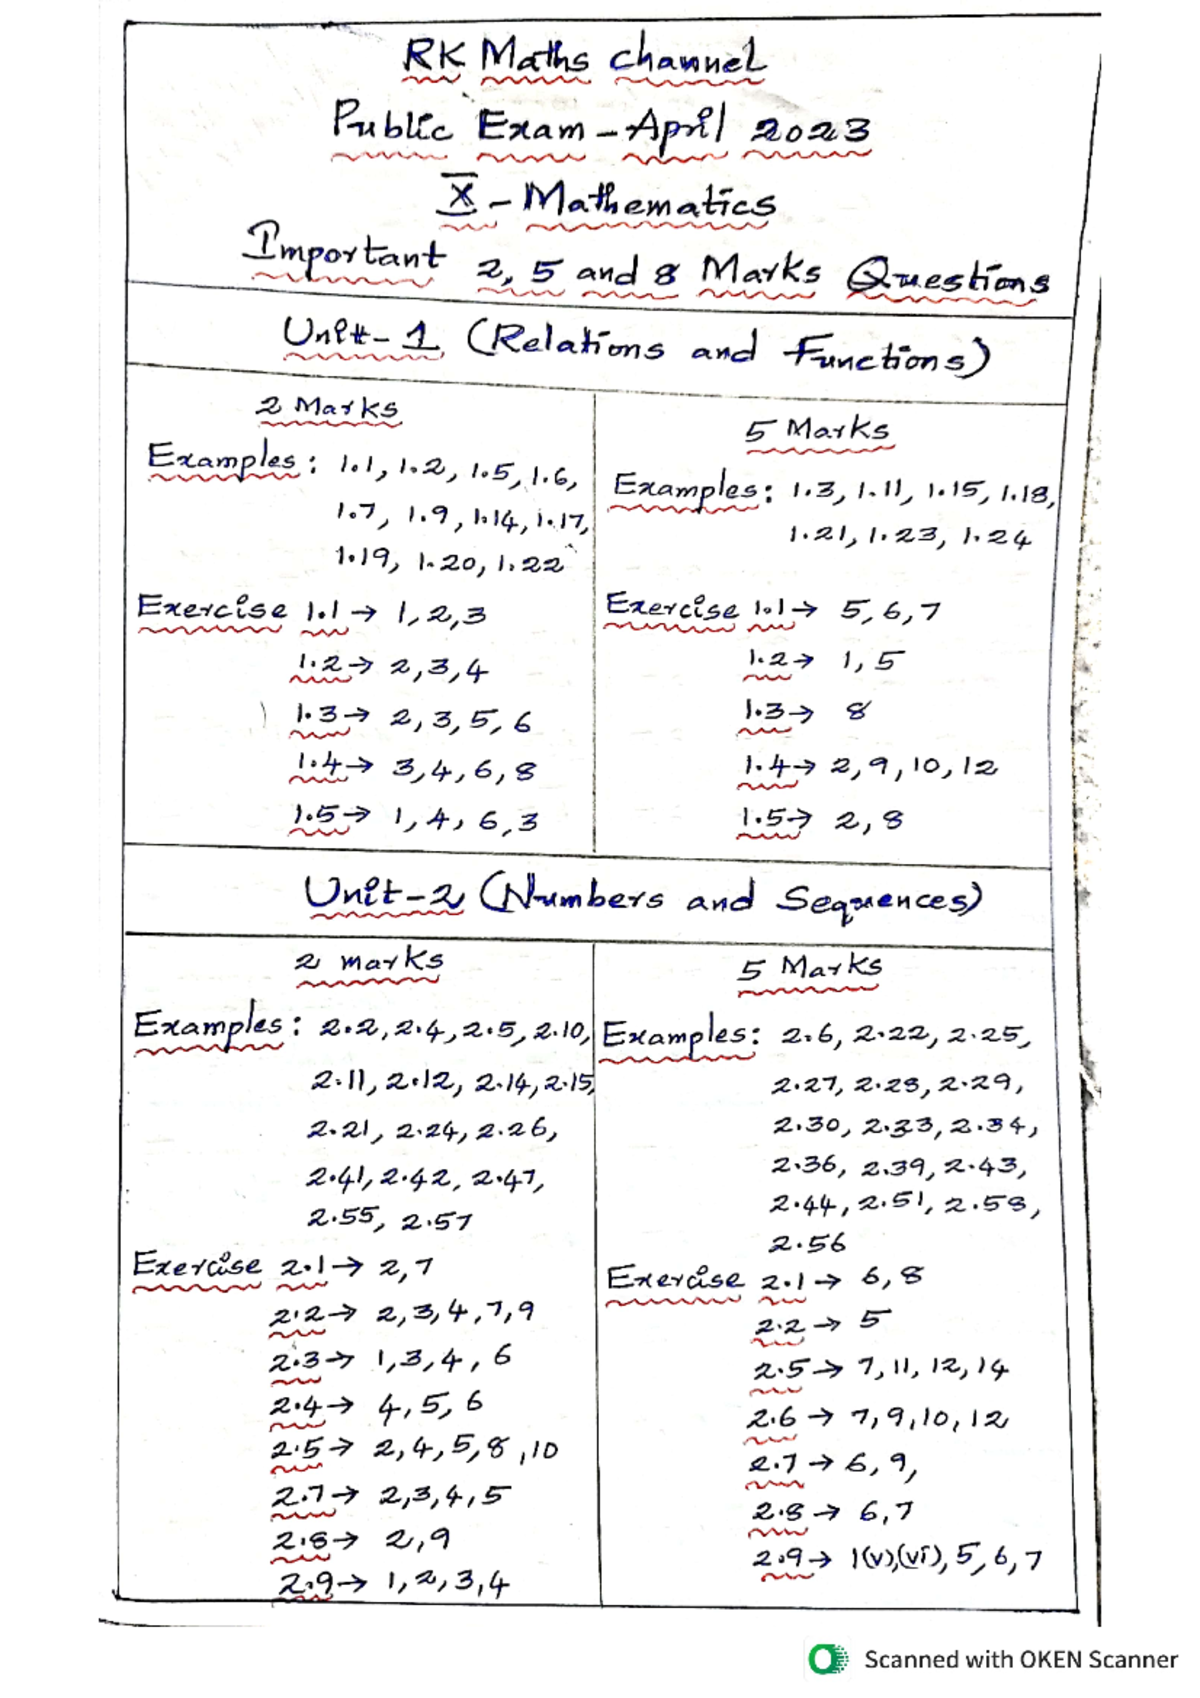 RK Maths channel
Public Exam - April 2023
X - Mathematics
Important 2, 5 and 8 Marks Questions
Unit - 1 (Relations and Functions)
2 Marks
Examples: 1.1, 1.2, 1.5, 1.6,
1.7, 1.9, 1.14, 1.17,
1.19, 1.20, 1.22
Exercise 1.1 → 1, 2, 3
1.2 → 2, 3, 4
1.3 → 2, 3, 5, 6
1.4 → 3, 4, 6, 8
1.5 → 1, 4, 6, 3
5 Marks
Examples: 1.3, 1.11, 1.15, 1.18,
1.21, 1.23, 1.24
Exercise 1.1 → 5, 6, 7
1.2 → 1, 5
1.3 → 8
1.4 → 2, 9, 10, 12
1.5 → 2, 8
Unit - 2 (Numbers and Sequences)
2 marks
Examples: 2.2, 2.4, 2.5, 2.10,
2.11, 2.12, 2.14, 2.15,
2.21, 2.24, 2.26,
2.41, 2.42, 2.47,
2.55, 2.57
Exercise 2.1 → 2, 7
2.2 → 2, 3, 4, 7, 9
2.3 → 1, 3, 4, 6
2.4 → 4, 5, 6
2.5 → 2, 4, 5, 8, 10
2.7 → 2, 3, 4, 5
2.8 → 2, 9
2.9 → 1, 2, 3, 4
5 Marks
Examples: 2.6, 2.22, 2.25,
2.27, 2.28, 2.29,
2.30, 2.33, 2.34,
2.36, 2.39, 2.43,
2.44, 2.51, 2.58,
2.56
Exercise 2.1 → 6, 8
2.2 → 5
2.5 → 7, 11, 12, 14
2.6 → 7, 9, 10, 12
2.7 → 6, 9,
2.8 → 6, 7
2.9 → 1(v),(vi), 5, 6, 7
Scanned with OKEN Scanner